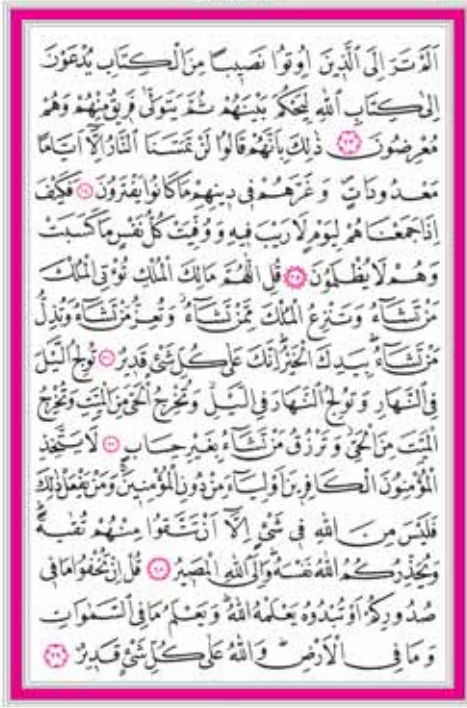 اَلَمْ تَرَ اِلَى الَّذ۪ينَ اُو۫تُوا نَص۪يبًا مِنَ الْكِتَابِ يُدْعَوْنَ
اِلٰى كِتَابِ اللّٰهِ لِيَحْكُمَ بَيْنَهُمْ ثُمَّ يَتَوَلّٰى فَر۪يقٌ مِنْهُمْ وَهُمْ
مُعْرِضُونَ ﴿٢٣﴾ ذٰلِكَ بِاَنَّهُمْ قَالُوا لَنْ تَمَسَّنَا النَّارُ اِلَّٓا اَيَّامًا
مَعْدُودَاتٍۖ وَغَرَّهُمْ ف۪ي د۪ينِهِمْ مَا كَانُوا يَفْتَرُونَ ﴿٢٤﴾ فَكَيْفَ
اِذَا جَمَعْنَاهُمْ لِيَوْمٍ لَا رَيْبَ ف۪يهِ وَوُفِّيَتْ كُلُّ نَفْسٍ مَا كَسَبَتْ
وَهُمْ لَا يُظْلَمُونَ ﴿٢٥﴾ قُلِ اللّٰهُمَّ مَالِكَ الْمُلْكِ تُؤْتِي الْمُلْكَ
مَنْ تَشَٓاءُ وَتَنْزِعُ الْمُلْكَ مِمَّنْ تَشَٓاءُۘ وَتُعِزُّ مَنْ تَشَٓاءُ وَتُذِلُّ
مَنْ تَشَٓاءُۜ بِيَدِكَ الْخَيْرُۜ اِنَّكَ عَلٰى كُلِّ شَيْءٍ قَد۪يرٌ ﴿٢٦﴾ تُولِجُ الَّيْلَ
فِي النَّهَارِ وَتُولِجُ النَّهَارَ فِي الَّيْلِۘ وَتُخْرِجُ الْحَيَّ مِنَ الْمَيِّتِ وَتُخْرِجُ
الْمَيِّتَ مِنَ الْحَيِّۘ وَتَرْزُقُ مَنْ تَشَٓاءُ بِغَيْرِ حِسَابٍ ﴿٢٧﴾ لَا يَتَّخِذِ
الْمُؤْمِنُونَ الْكَافِر۪ينَ اَوْلِيَٓاءَ مِنْ دُونِ الْمُؤْمِن۪ينَۚ وَمَنْ يَفْعَلْ ذٰلِكَ
فَلَيْسَ مِنَ اللّٰهِ ف۪ي شَيْءٍ اِلَّٓا اَنْ تَتَّقُوا مِنْهُمْ تُقٰيةًۜ
وَيُحَذِّرُكُمُ اللّٰهُ نَفْسَهُۜ وَاِلَى اللّٰهِ الْمَص۪يرُ ﴿٢٨﴾ قُلْ اِنْ تُخْفُوا مَا ف۪ي
صُدُورِكُمْ اَوْ تُبْدُوهُ يَعْلَمْهُ اللّٰهُۜ وَيَعْلَمُ مَا فِي السَّمٰوَاتِ
وَمَا فِي الْاَرْضِۜ وَاللّٰهُ عَلٰى كُلِّ شَيْءٍ قَد۪يرٌ ﴿٢٩﴾